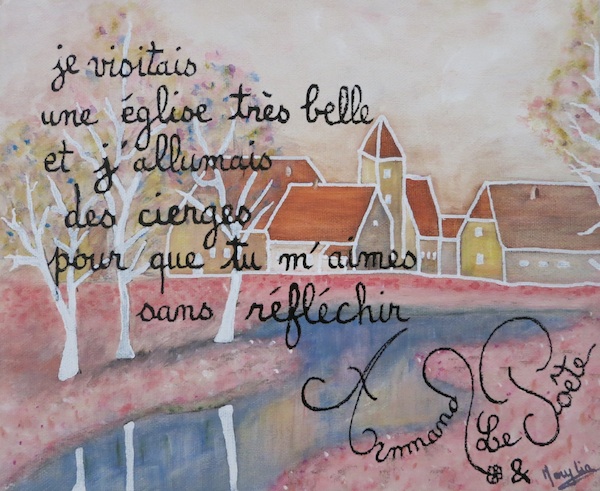 je visitais
une église très belle
et j'allumais
des cierges
pour que tu m'aimes
sans réfléchir
Armmand
Le Poête
& Marylia